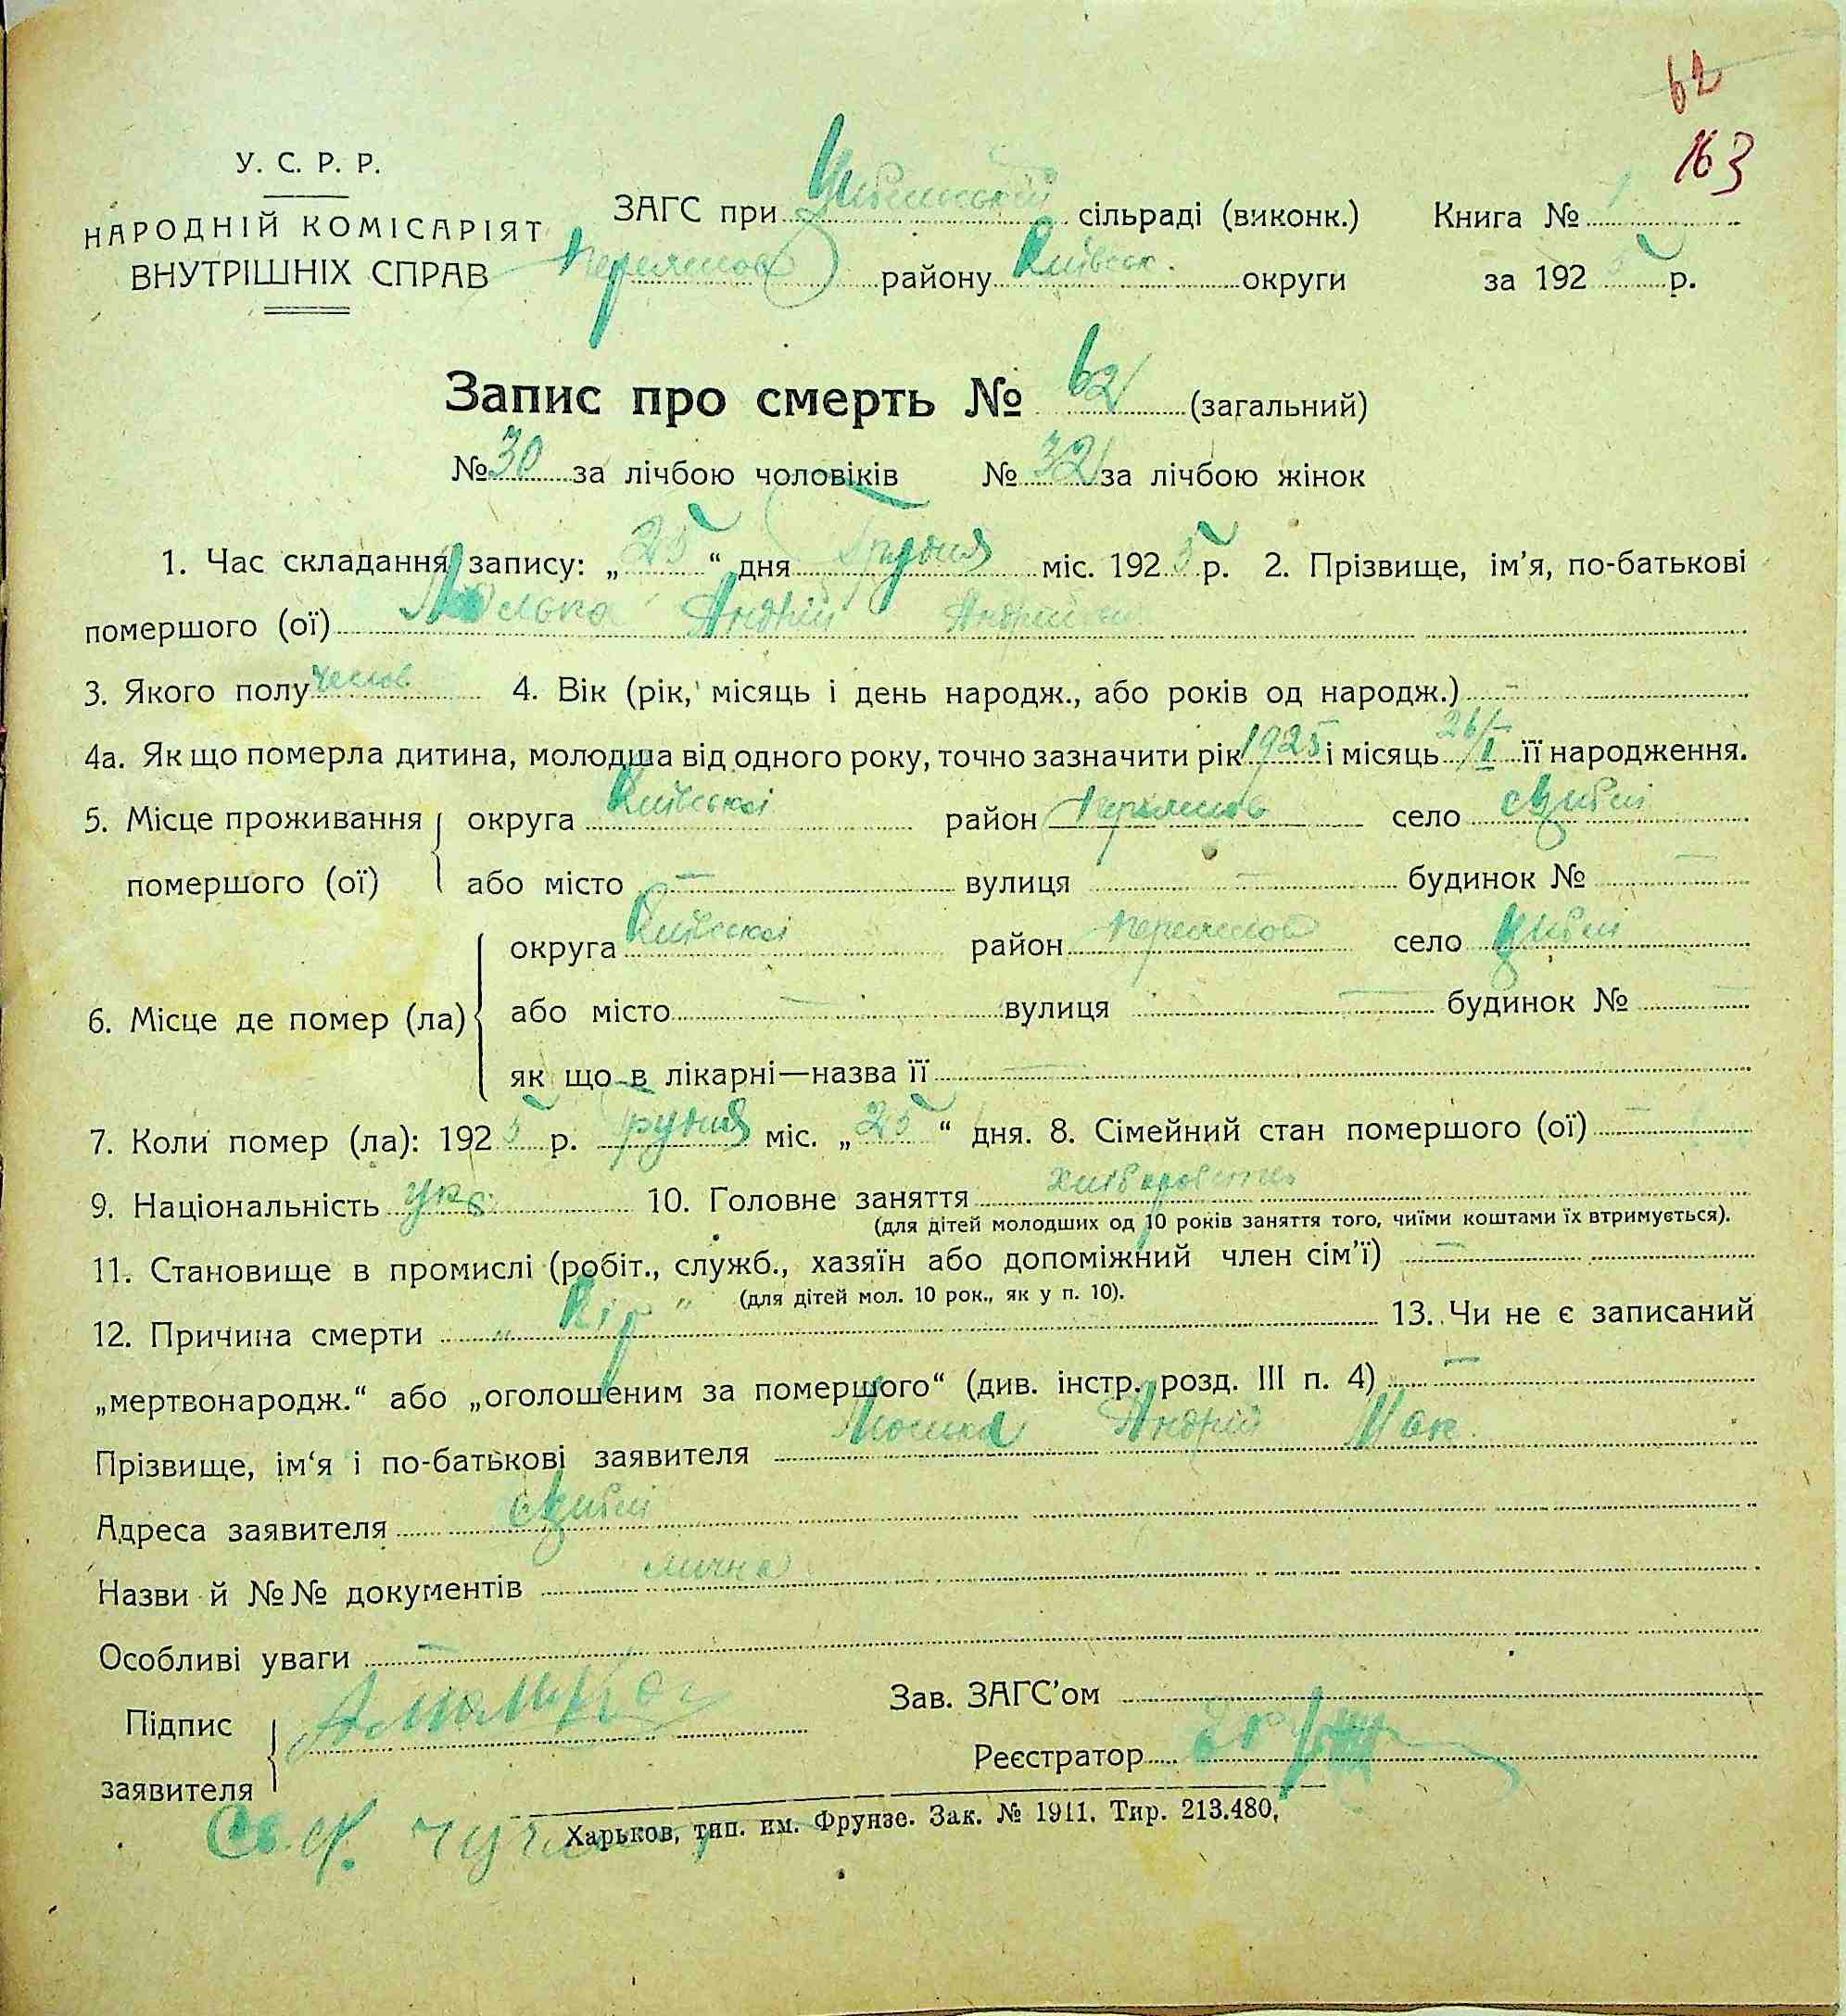 62
163
У. С. Р. Р.
НАРОДНІЙ КОМІСАРІЯТ
ВНУТРІШНІХ СПРАВ
ЗАГС при Цибельській сільраді (виконк.) Книга № 1
Переяслов району Київськ. округи за 1925 р.
Запис про смерть № 62 (загальний)
№ 30 за лічбою чоловіків № 32 за лічбою жінок
1. Час складання запису: „25“ дня Грудня міс. 1925 р. 2. Прізвище, ім’я, по-батькові
помершого (ої) Андрій
3. Якого полу чолов 4. Вік (рік, місяць і день народж., або років од народж.) –
4а. Як що померла дитина, молодша від одного року, точно зазначити рік 1925 і місяць 26/I її народження.
5. Місце проживання округа Київської район Переяслов село с Цибелі
помершого (ої) або місто – вулиця – будинок № –
округа Київської район Переяслов село Цибелі
6. Місце де помер (ла) або місто – вулиця – будинок № –
як що в лікарні—назва її –
7. Коли помер (ла): 1925 р. Грудня міс. „25“ дня. 8. Сімейний стан помершого (ої) –
9. Національність укр 10. Головне заняття хлібороботи
(для дітей молодших од 10 років заняття того, чиїми коштами їх втримується).
11. Становище в промислі (робіт., служб., хазяїн або допоміжний член сім’ї) –
(для дітей мол. 10 рок., як у п. 10).
12. Причина смерти „Кір“ 13. Чи не є записаний
„мертвонародж.“ або „оголошеним за помершого“ (див. інстр. розд. III п. 4) –
Прізвище, ім‘я і по-батькові заявителя Андрій
Адреса заявителя с Цибелі
Назви й №№ документів лична
Особливі уваги –
Підпис
заявителя
Зав. ЗАГС’ом
Реєстратор
Харьков, тип. им. Фрунзе. Зак. № 1911. Тир. 213.480.